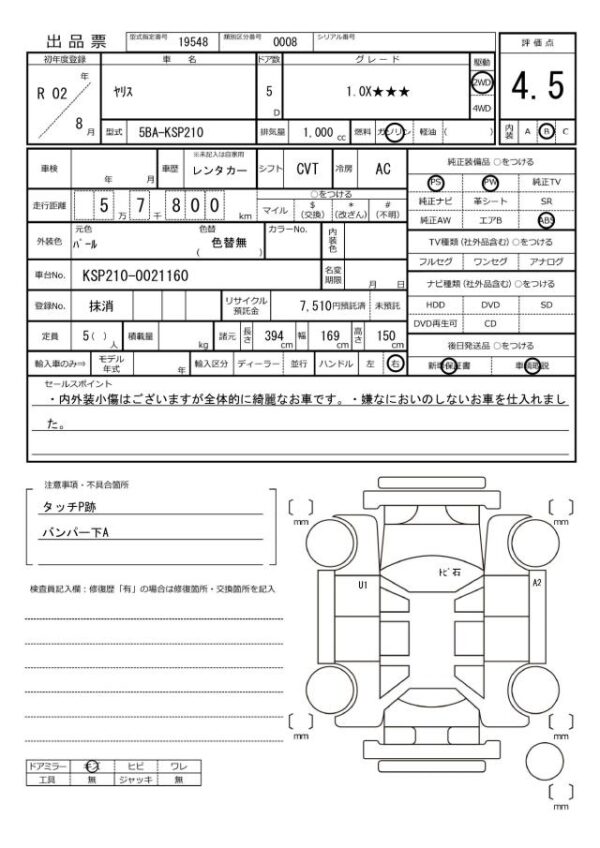 出品票 型式指定番号 19548 類別区分番号 0008 シリアル番号
評価点
4.5
初年度登録 車名 ドア数 グレード 駆動
R 02 年 8 月 ﾔﾘｽ 5 D 1.0X★★★ 2WD 4WD
型式 5BA-KSP210 排気量 1,000 cc 燃料 ガソリン 軽油 ( ) 内装 A B C
車検 年 月 車歴 ※未記入は自家用 レンタカー シフト CVT 冷房 AC
走行距離 5 万 7 千 8 0 0 km ○をつける マイル $(交換) *(改ざん) #(不明)
外装色 元色 ﾊﾟｰﾙ 色替 色替無 ( ) カラーNo. 内装色
車台No. KSP210-0021160 名変期限 月 日
登録No. 抹消 リサイクル預託金 7,510円預託済 未預託
定員 5( ) 人 積載量 kg 諸元 長さ 394 cm 幅 169 cm 高さ 150 cm
輸入車のみ⇒ モデル年式 年 輸入区分 ディーラー 並行 ハンドル 左 右
純正装備品 ○をつける
PS PW 純正TV
純正ナビ 革シート SR
純正AW エアB ABS
TV種類（社外品含む）○をつける
フルセグ ワンセグ アナログ
ナビ種類（社外品含む）○をつける
HDD DVD SD
DVD再生可 CD
後日発送品 ○をつける
新車保証書 車輌取説
セールスポイント
・内外装小傷はございますが全体的に綺麗なお車です。・嫌なにおいのしないお車を仕入れまし
た。
注意事項・不具合箇所
タッチP跡
バンパー下A
検査員記入欄：修復歴「有」の場合は修復箇所・交換箇所を記入
ドアミラー キズ ヒビ ワレ
工具 無 ジャッキ 無
[ ] mm
[ ] mm
ﾄﾋﾞ石
U1
A2
[ ] mm
[ ] mm
[ ] mm